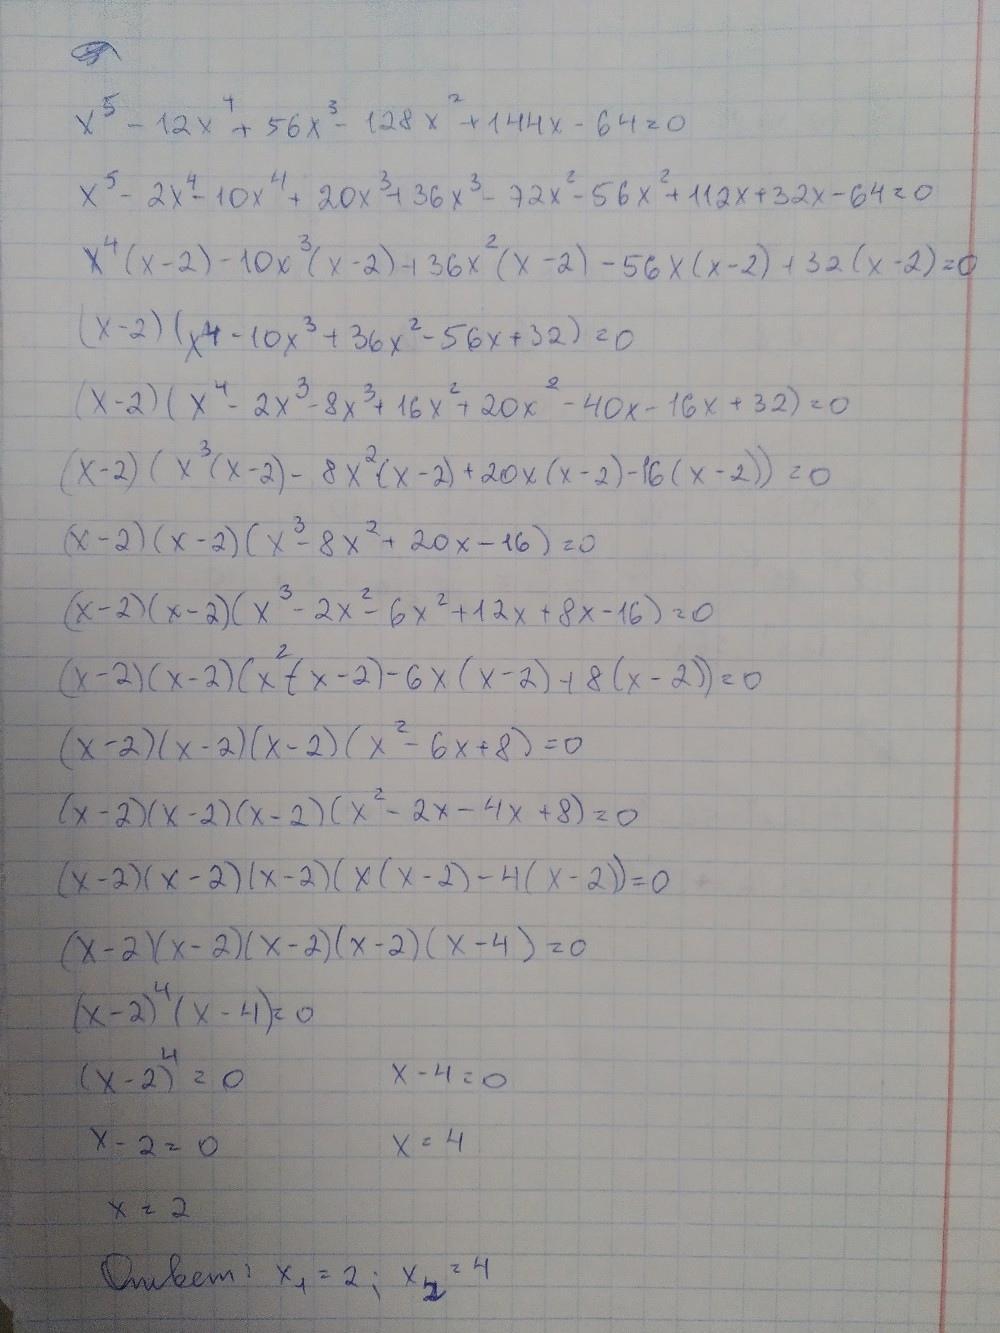 x⁵ - 12x⁴ + 56x³ - 128x² + 144x - 64 = 0
x⁵ - 2x⁴ - 10x⁴ + 20x³ + 36x³ - 72x² - 56x² + 112x + 32x - 64 = 0
x⁴(x-2) - 10x³(x-2) + 36x²(x-2) - 56x(x-2) + 32(x-2) = 0
(x-2)(x⁴ - 10x³ + 36x² - 56x + 32) = 0
(x-2)(x⁴ - 2x³ - 8x³ + 16x² + 20x² - 40x - 16x + 32) = 0
(x-2)(x³(x-2) - 8x²(x-2) + 20x(x-2) - 16(x-2)) = 0
(x-2)(x-2)(x³ - 8x² + 20x - 16) = 0
(x-2)(x-2)(x³ - 2x² - 6x² + 12x + 8x - 16) = 0
(x-2)(x-2)(x²(x-2) - 6x(x-2) + 8(x-2)) = 0
(x-2)(x-2)(x-2)(x² - 6x + 8) = 0
(x-2)(x-2)(x-2)(x² - 2x - 4x + 8) = 0
(x-2)(x-2)(x-2)(x(x-2) - 4(x-2)) = 0
(x-2)(x-2)(x-2)(x-2)(x-4) = 0
(x-2)⁴(x-4) = 0
(x-2)⁴ = 0 x-4 = 0
x-2 = 0 x = 4
x = 2
Ответ: x₁ = 2; x₂ = 4